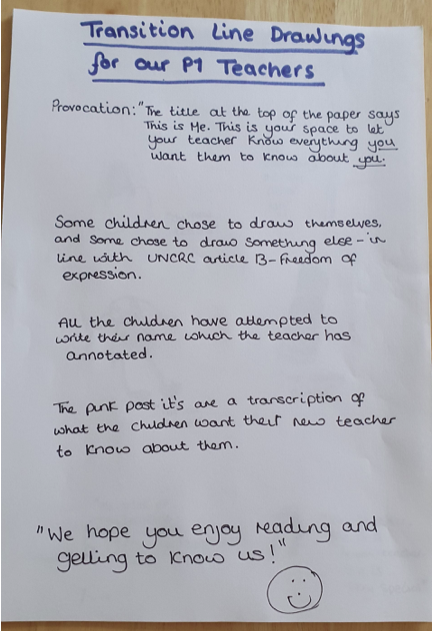 Transition Line Drawings
for our P1 Teachers
Provocation: "The title at the top of the paper says
This is Me. This is your space to let
your teacher know everything you
want them to know about you.
Some children chose to draw themselves,
and some chose to draw something else - in
line with UNCRC article 13 - freedom of
expression.
All the children have attempted to
write their name which the teacher has
annotated.
The pink post it's are a transcription of
what the children want their new teacher
to know about them.
"We hope you enjoy reading and
getting to know us!"